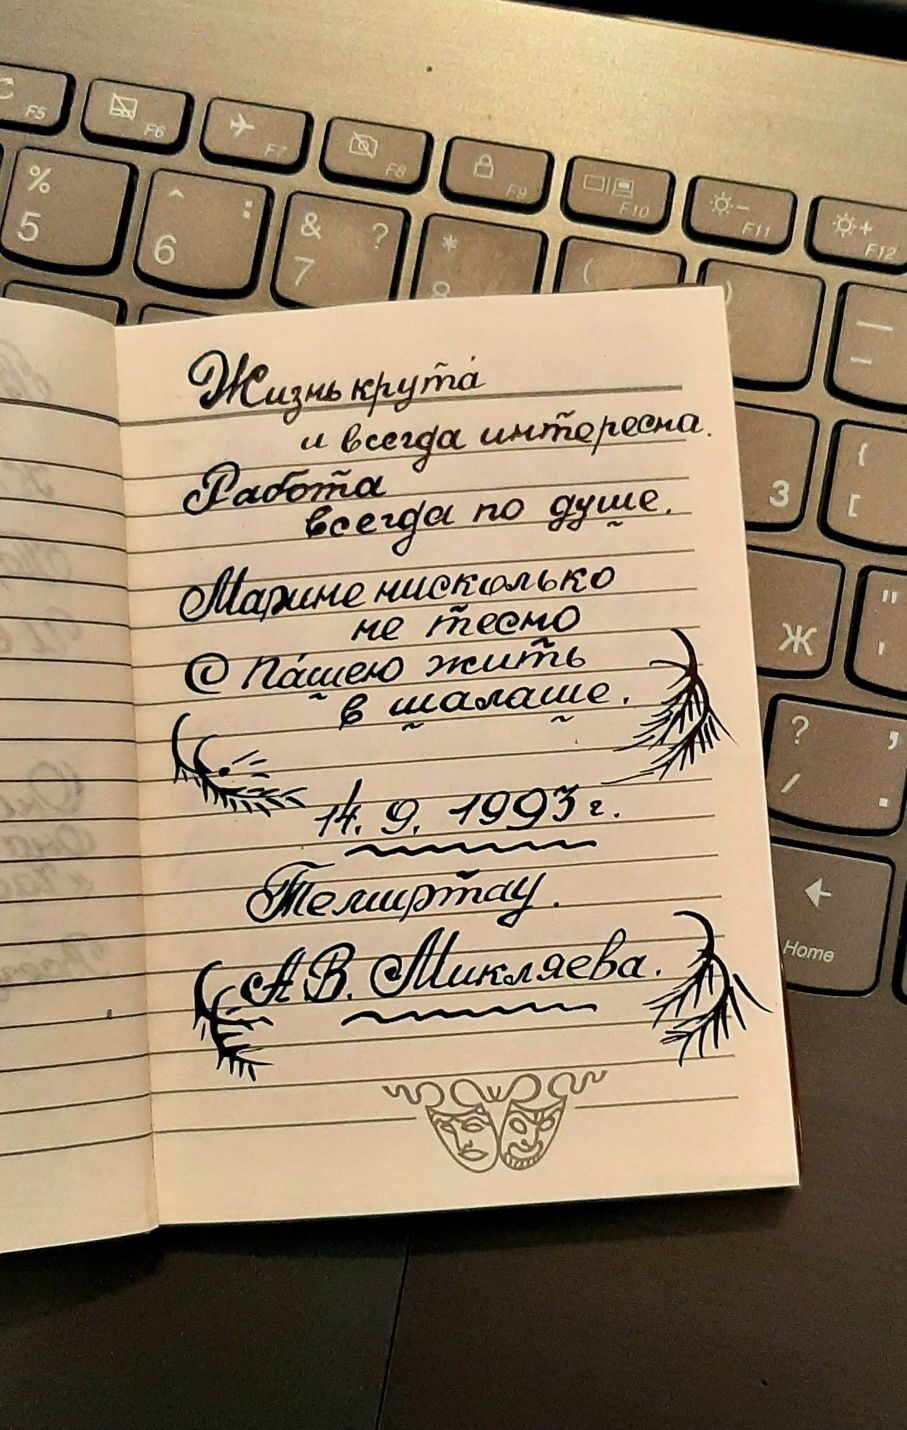 C F5
F6
F7
F8
F9
F10
F11
F12
% 5
^ : 6
& ? 7
* 8
(
)
Жизнь крута́
и всегда интересна.
Работа
всегда по душе.
Марине нисколько
не тесно
С Па́шею жить
в шалаше.
14. 9. 1993 г.
Темиртау.
АВ. Микляева.
—
–
З
{
[
Ж
"
'
? ,
/ .
Home